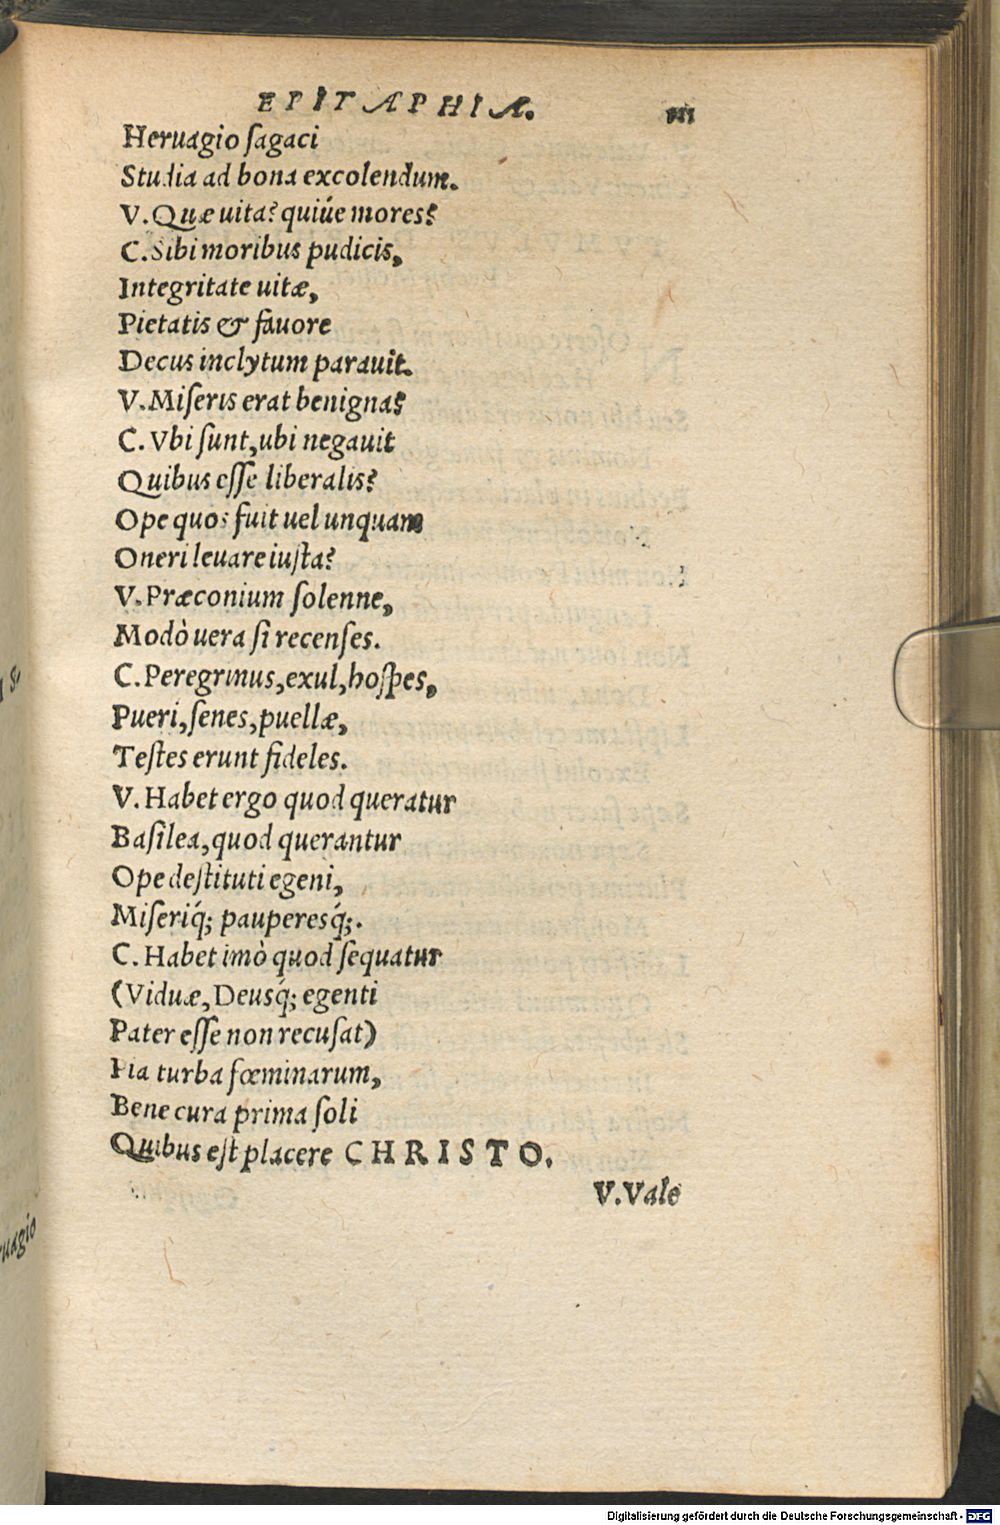 EPITAPHIA. 
Heruagio ſagaci
Studia ad bona excolendum.
V. Quæ uita? quiúe mores?
C. Sibi moribus pudicis,
Integritate uitæ,
Pietatis & fauore
Decus inclytum parauit.
V. Miſeris erat benigna?
C. Vbi ſunt, ubi negauit
Quibus eſſe liberalis?
Ope quos fuit uel unquam
Oneri leuare iuſta?
V. Præconium ſolenne,
Modò uera ſi recenſes.
C. Peregrinus, exul, hoſpes,
Pueri, ſenes, puellæ,
Teſtes erunt fideles.
V. Habet ergo quod queratur
Baſilea, quod querantur
Ope deſtituti egeni,
Miſeriq́; pauperesq́;.
C. Habet imò quod ſequatur
(Viduæ, Deusq́; egenti
Pater eſſe non recuſat)
Pia turba fœminarum,
Bene cura prima ſoli
Quibus eſt placere CHRISTO.
V. Vale
uagio
Digitalisierung gefördert durch die Deutsche Forschungsgemeinschaft - DFG